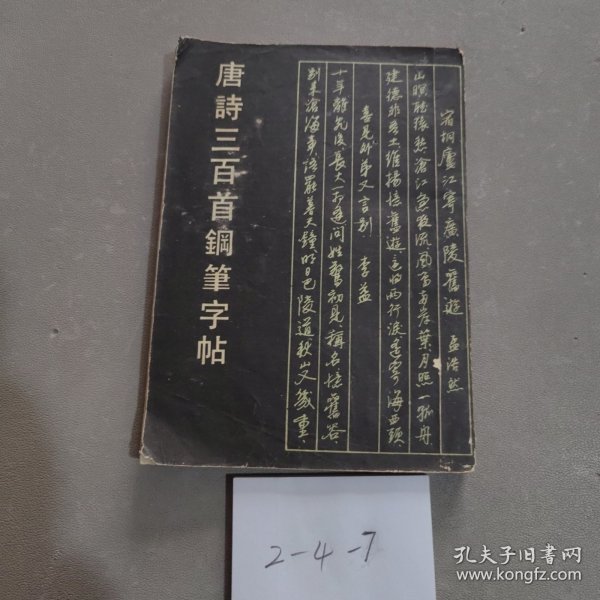 唐詩三百首鋼筆字帖
宿桐廬江寄廣陵舊遊 孟浩然
山暝聽猿愁滄江急夜流風鳴兩岸葉月照一孤舟
建德非吾土維揚憶舊遊還將兩行淚遙寄海西頭
喜見外弟又言別 李益
十年離亂後長大一相逢問姓驚初見稱名憶舊容
別來滄海事語罷暮天鐘明日巴陵道秋山又幾重
2-4-7
孔夫子旧书网
www.kongfz.com